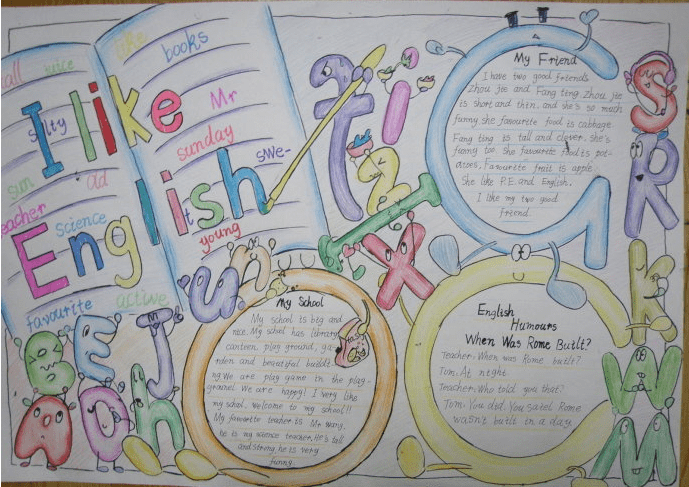 I like
English
tall
juice
like
books
salty
Mr
sunday
swe-
sun
ad
teacher
science
it
young
favourite
active
My Friend
I have two good friends
Zhou jee and Fang ting Zhou jee
is short and thin. and she's so much
funny she favourite food is cabbage.
Fang ting is tall and clever. she's
funny too. She favourite food is pot-
atoes, Favourite fruit is apple
She like P.E. and English.
I like my two good
friend.
My School
My school is big and
nice. My school has library
canteen play ground, ga-
rden and beautiful buildi
ng We are play game in the play-
ground. We are happy! I very like
my school. welcome to my school!!
My favourite teacher is Mr wang,
he is my science teacher. He's tall
and strong. he is very
funny.
English
Humours
When Was Rome Built?
Teacher: When was Rome built?
Tom: At night.
Teacher: Who told you that?
Tom: You did. You saied Rome
wasn't built in a day.
t
i
z
I
X
G
S
R
k
W
M
B
E
J
A
O
h
u
n